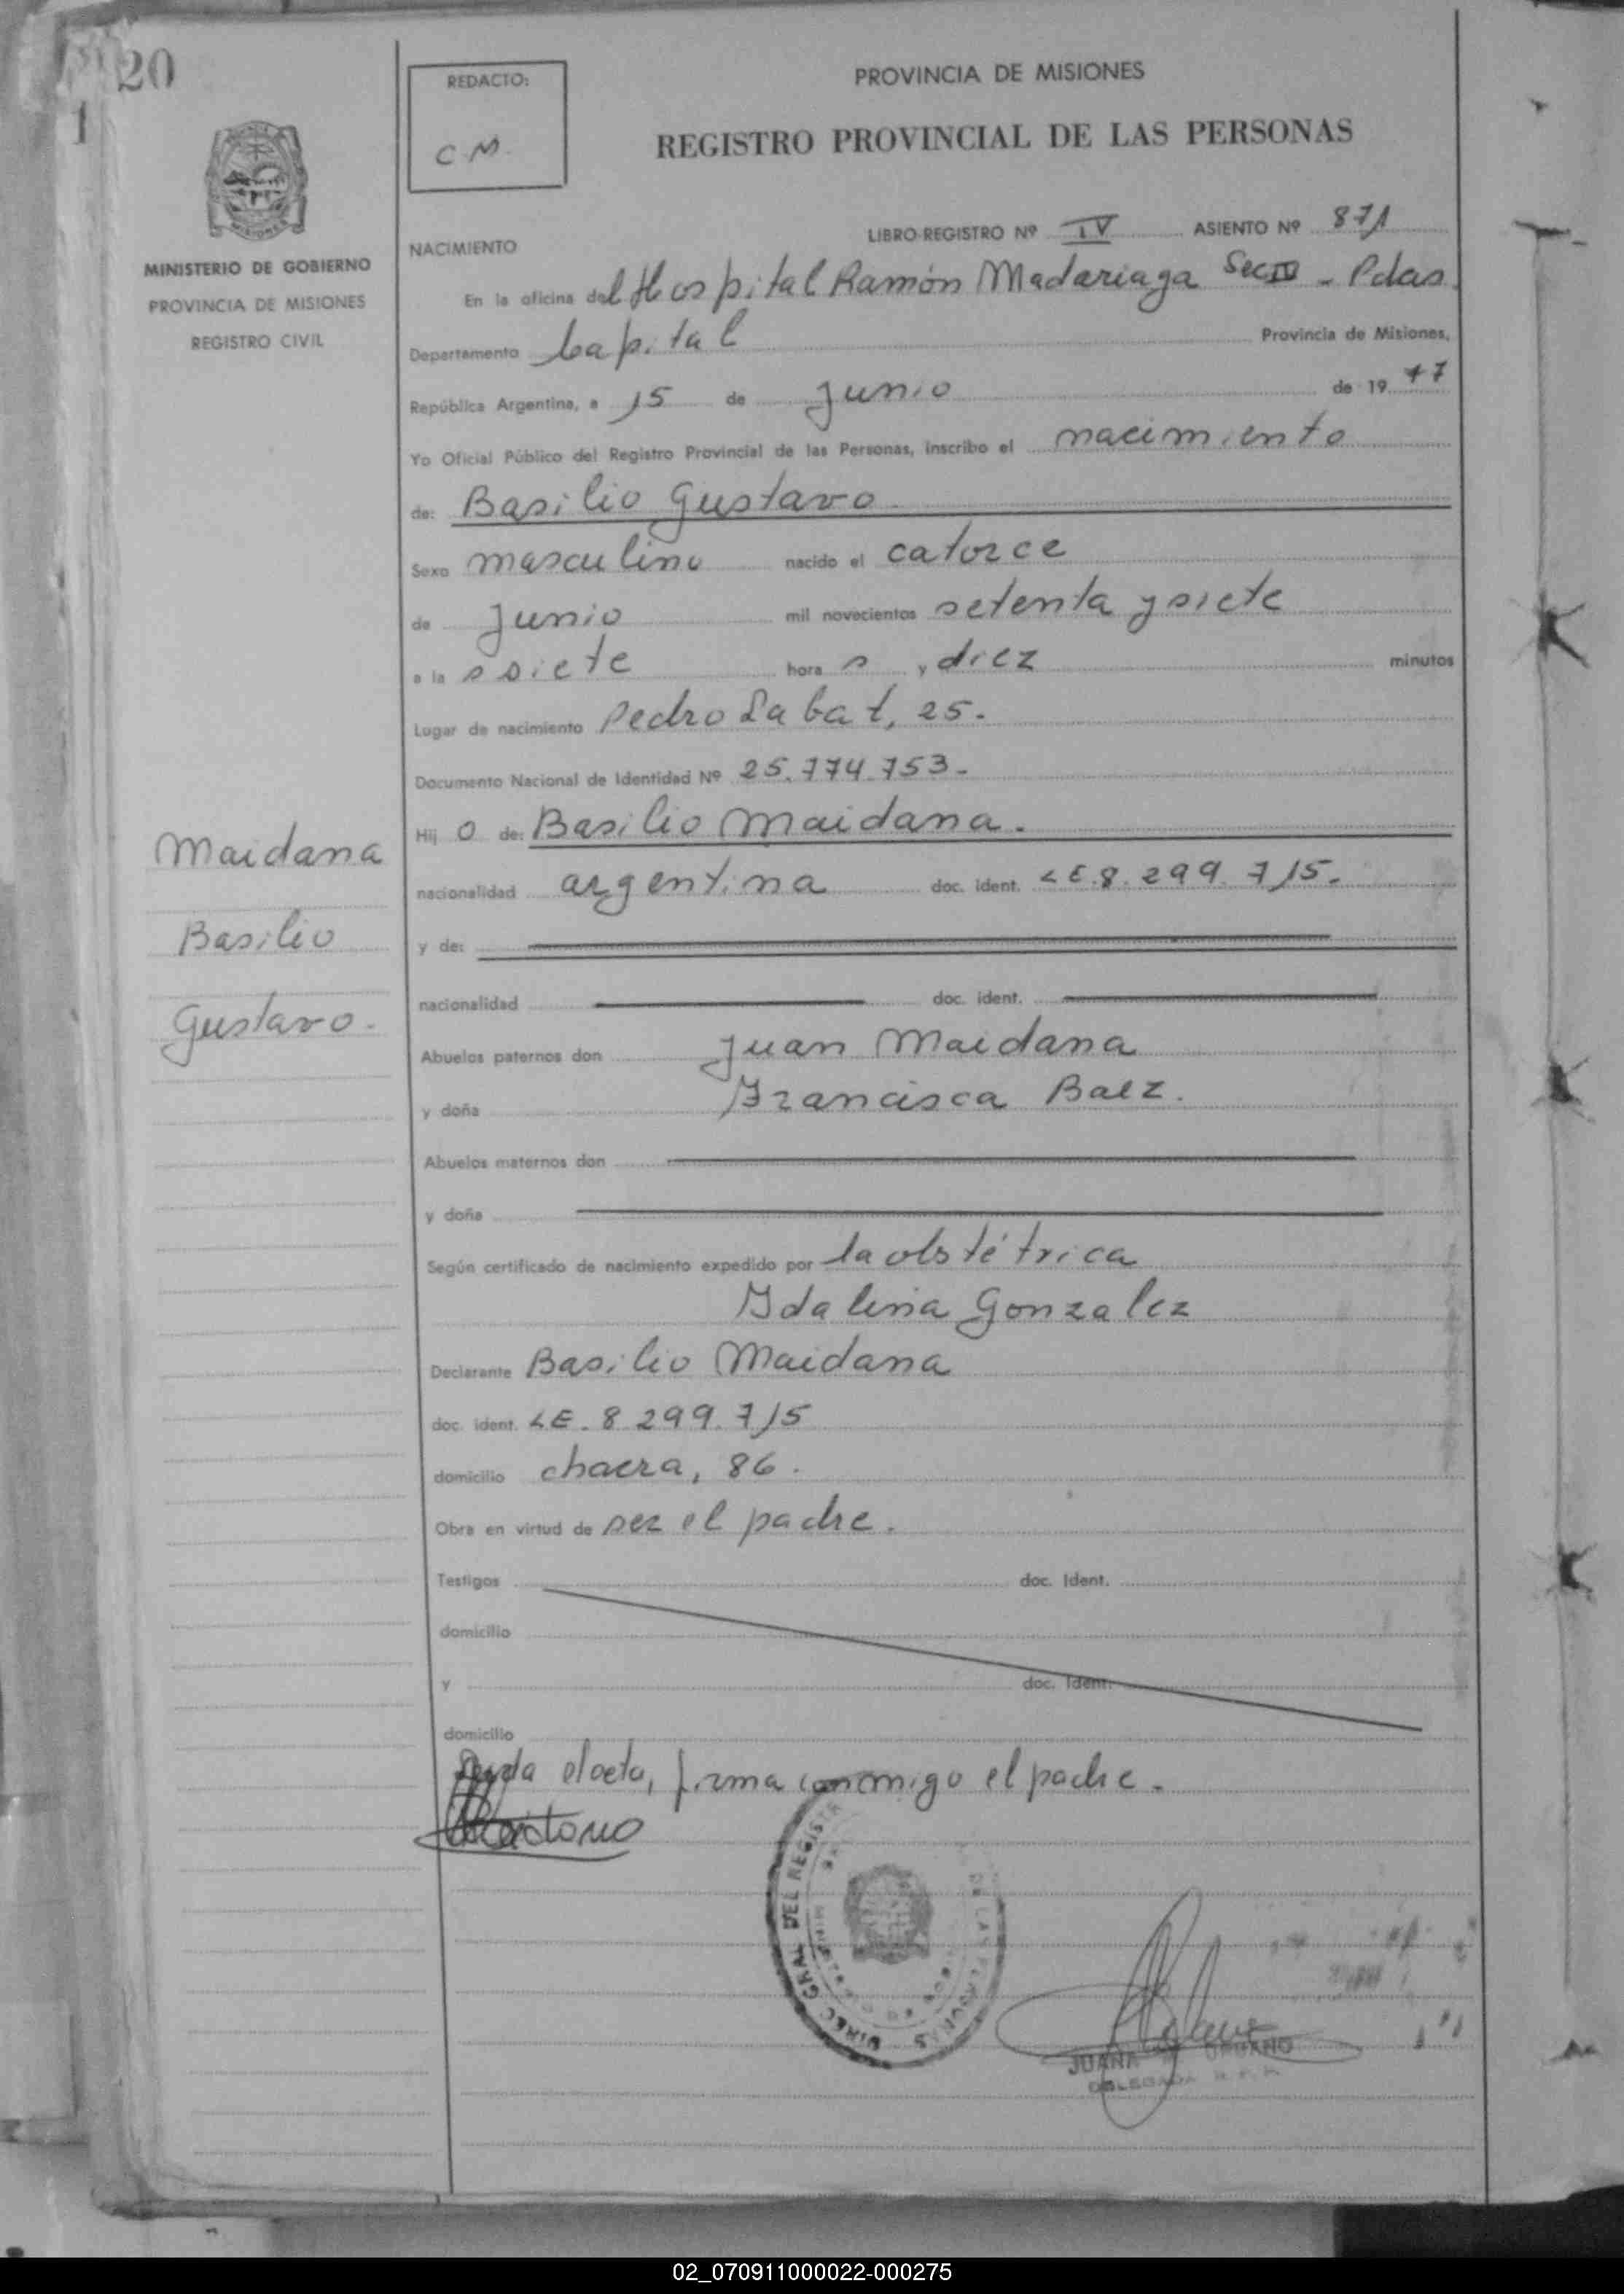 20
1
MINISTERIO DE GOBIERNO
PROVINCIA DE MISIONES
REGISTRO CIVIL
Maidana
Basilio
Gustavo.
REDACTO:
C.M.
PROVINCIA DE MISIONES
REGISTRO PROVINCIAL DE LAS PERSONAS
LIBRO-REGISTRO Nº IV ASIENTO Nº 871
NACIMIENTO
En la oficina del Hospital Ramón Madariaga Sec IV - Pdas.
Departamento Capital Provincia de Misiones,
República Argentina, a 15 de Junio de 1977
Yo Oficial Público del Registro Provincial de las Personas, inscribo el nacimiento
de: Basilio Gustavo
Sexo masculino nacido el catorce
de Junio mil novecientos setenta y siete
a la s siete hora s y diez minutos
Lugar de nacimiento Pedro Labat, 25.
Documento Nacional de Identidad Nº 25.774.753.
Hij o de: Basilio Maidana.
nacionalidad argentina doc. ident. LE.8.299.715.
y de:
nacionalidad doc. ident.
Abuelos paternos don Juan Maidana
y doña Francisca Baez.
Abuelos maternos don
y doña
Según certificado de nacimiento expedido por la obstétrica
Idalina Gonzalez
Declarante Basilio Maidana
doc. ident. LE. 8.299.715
domicilio chacra, 86.
Obra en virtud de ser el padre.
Testigos doc. Ident.
domicilio
y doc. Ident.
domicilio
Leyda el acta, firma conmigo el padre.
Maidana
DIREC GRAL DEL REGISTR
DE LAS PERSONAS
JUANA
DELEGADA R. P. P.
02_070911000022-000275